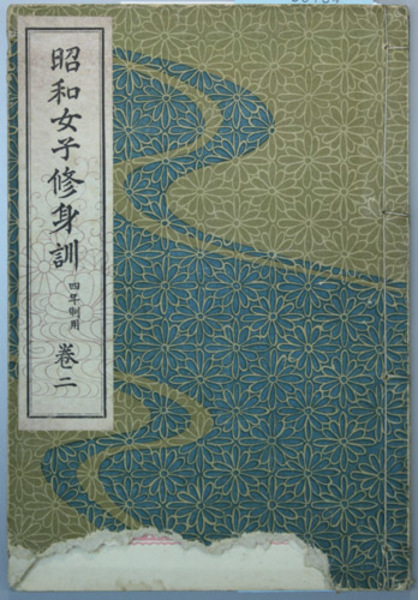 昭和女子修身訓
四年制用
巻二